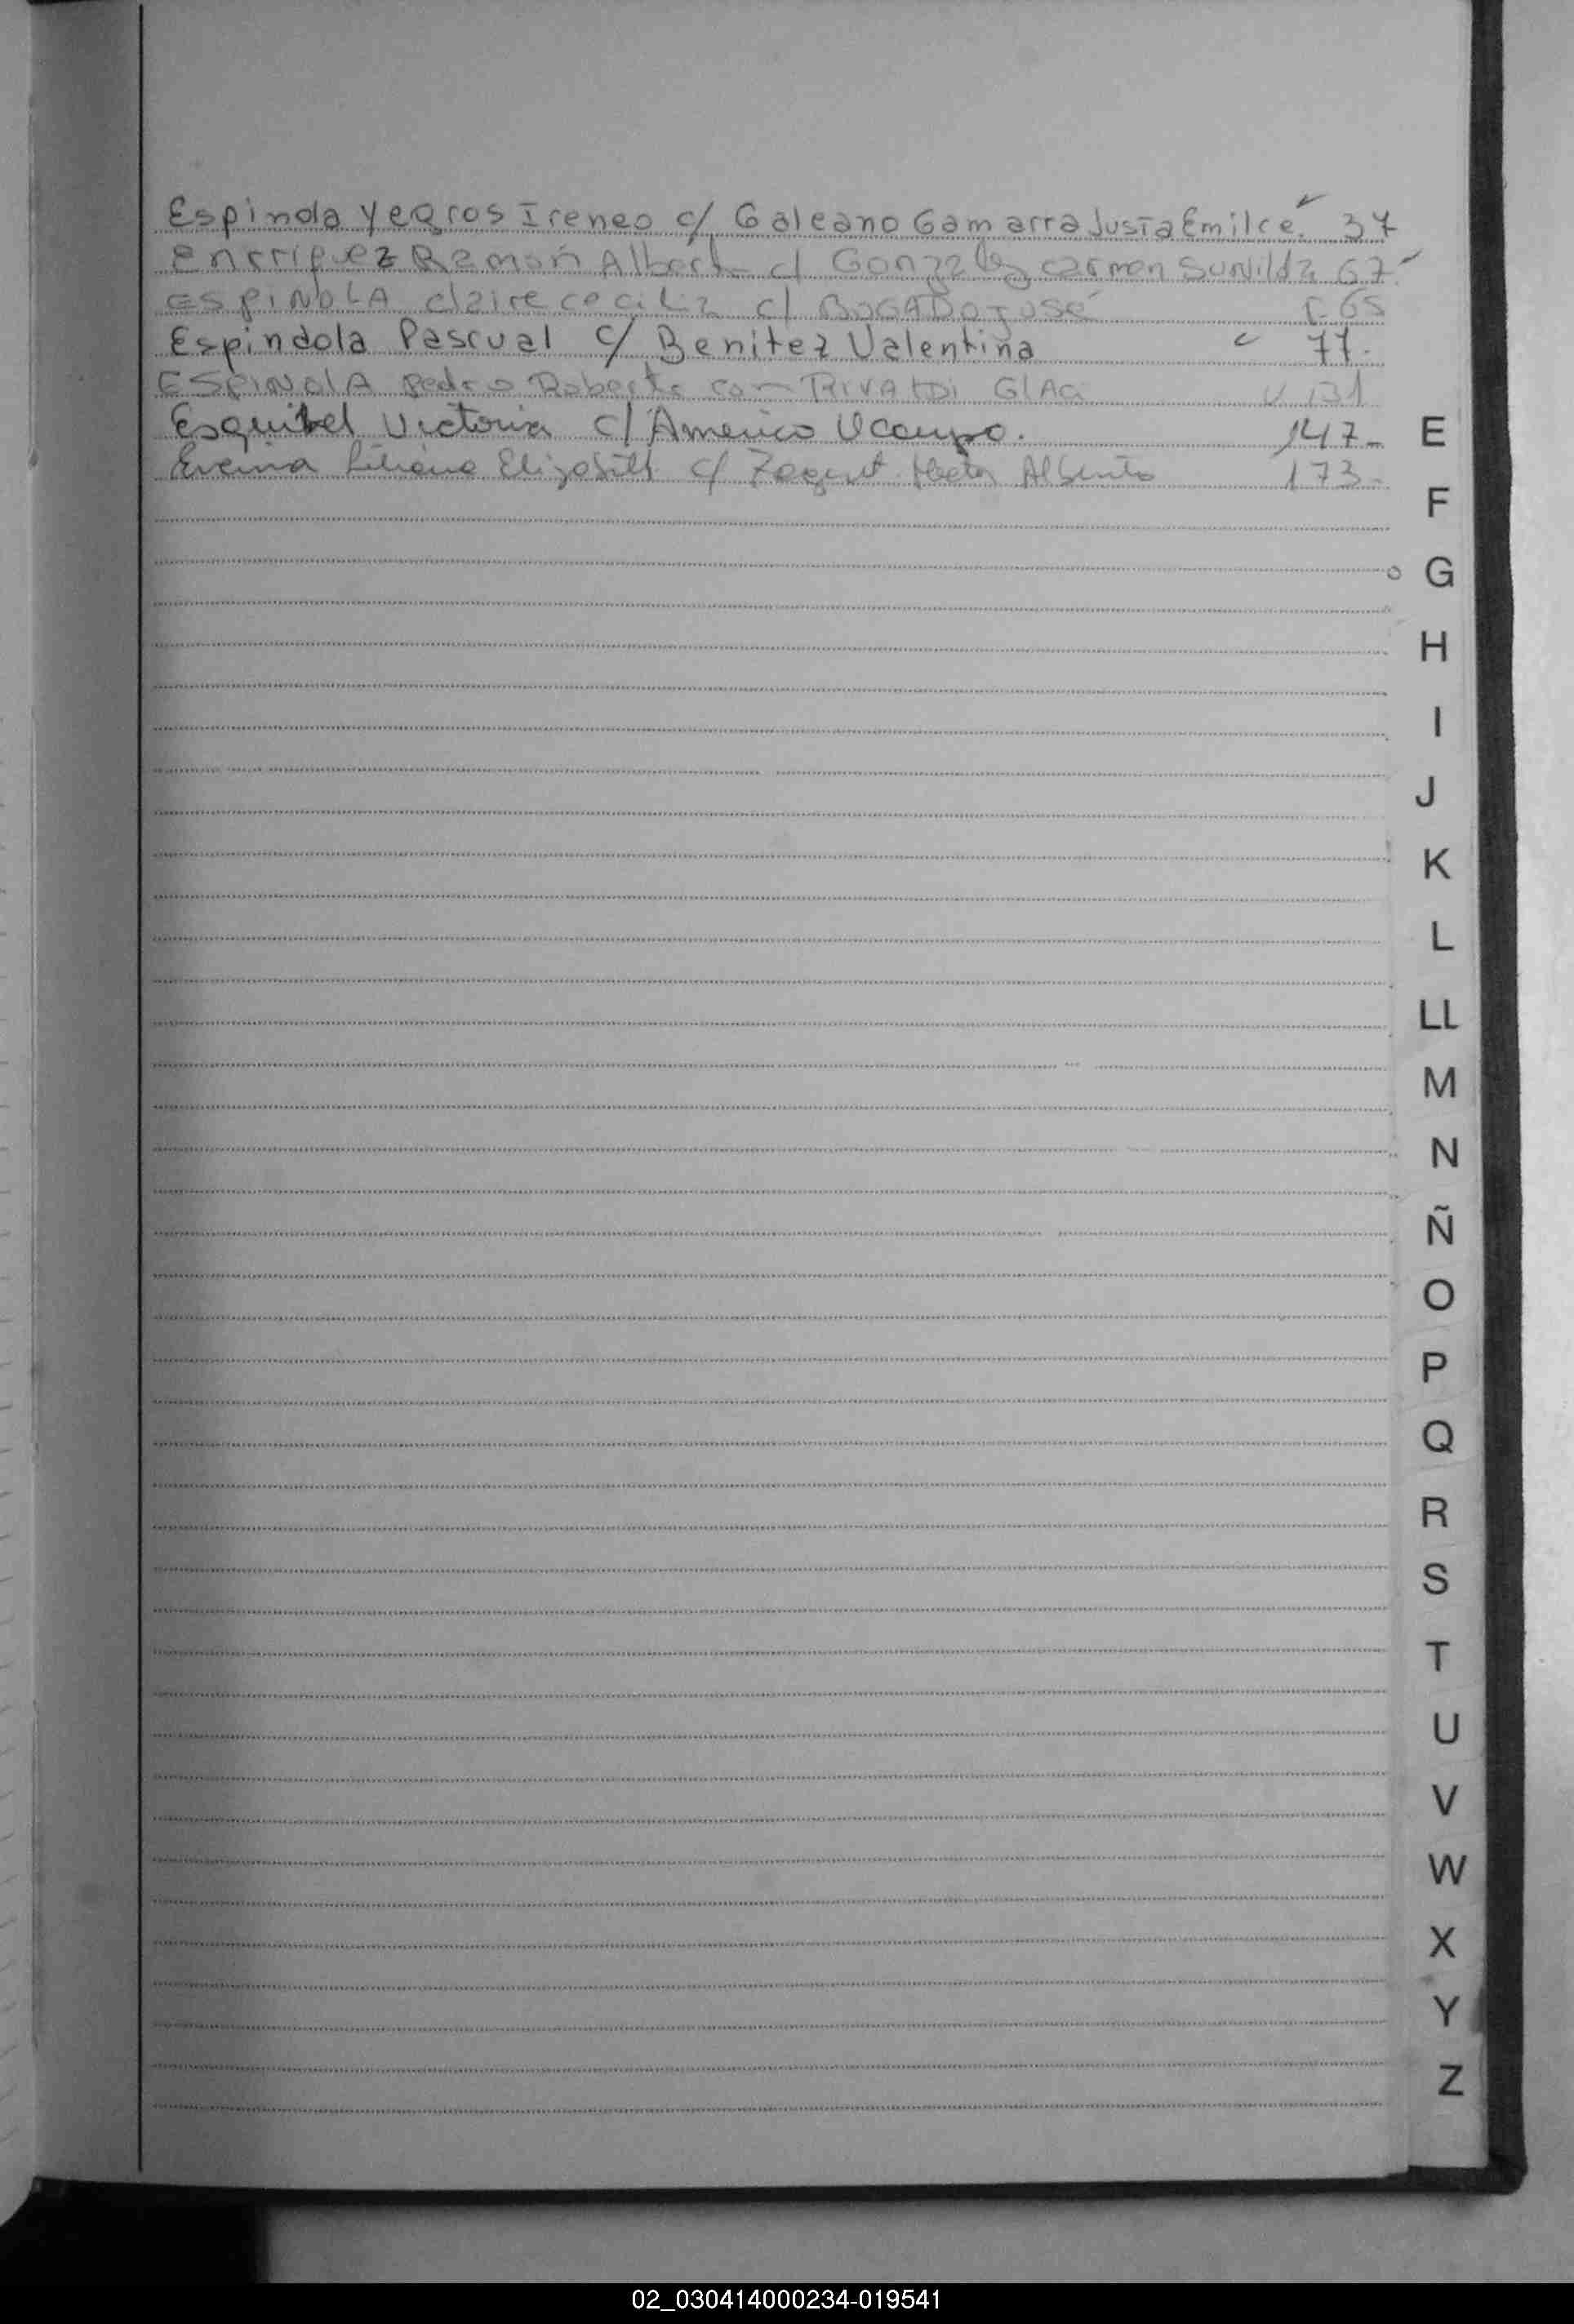 Espinola Yegros Ireneo c/ Galeano Gamarra Justa Emilce. 37
Encriquez Ramón Alberto c/ Gonzalez Carmen Sunilda 67
ESPINOLA claire cecilia c/ BOGADO JOSÉ 65
Espindola Pascual c/ Benitez Valentina 77.
ESPINOlA Pedro Roberto con RIVALDI 131
Esquibel Victoria c/ Americo Ocampo. 147-
Liliana Elizabeth c/ Hector Alberto 173-
E
F
G
H
I
J
K
L
LL
M
N
Ñ
O
P
Q
R
S
T
U
V
W
X
Y
Z
02_030414000234-019541